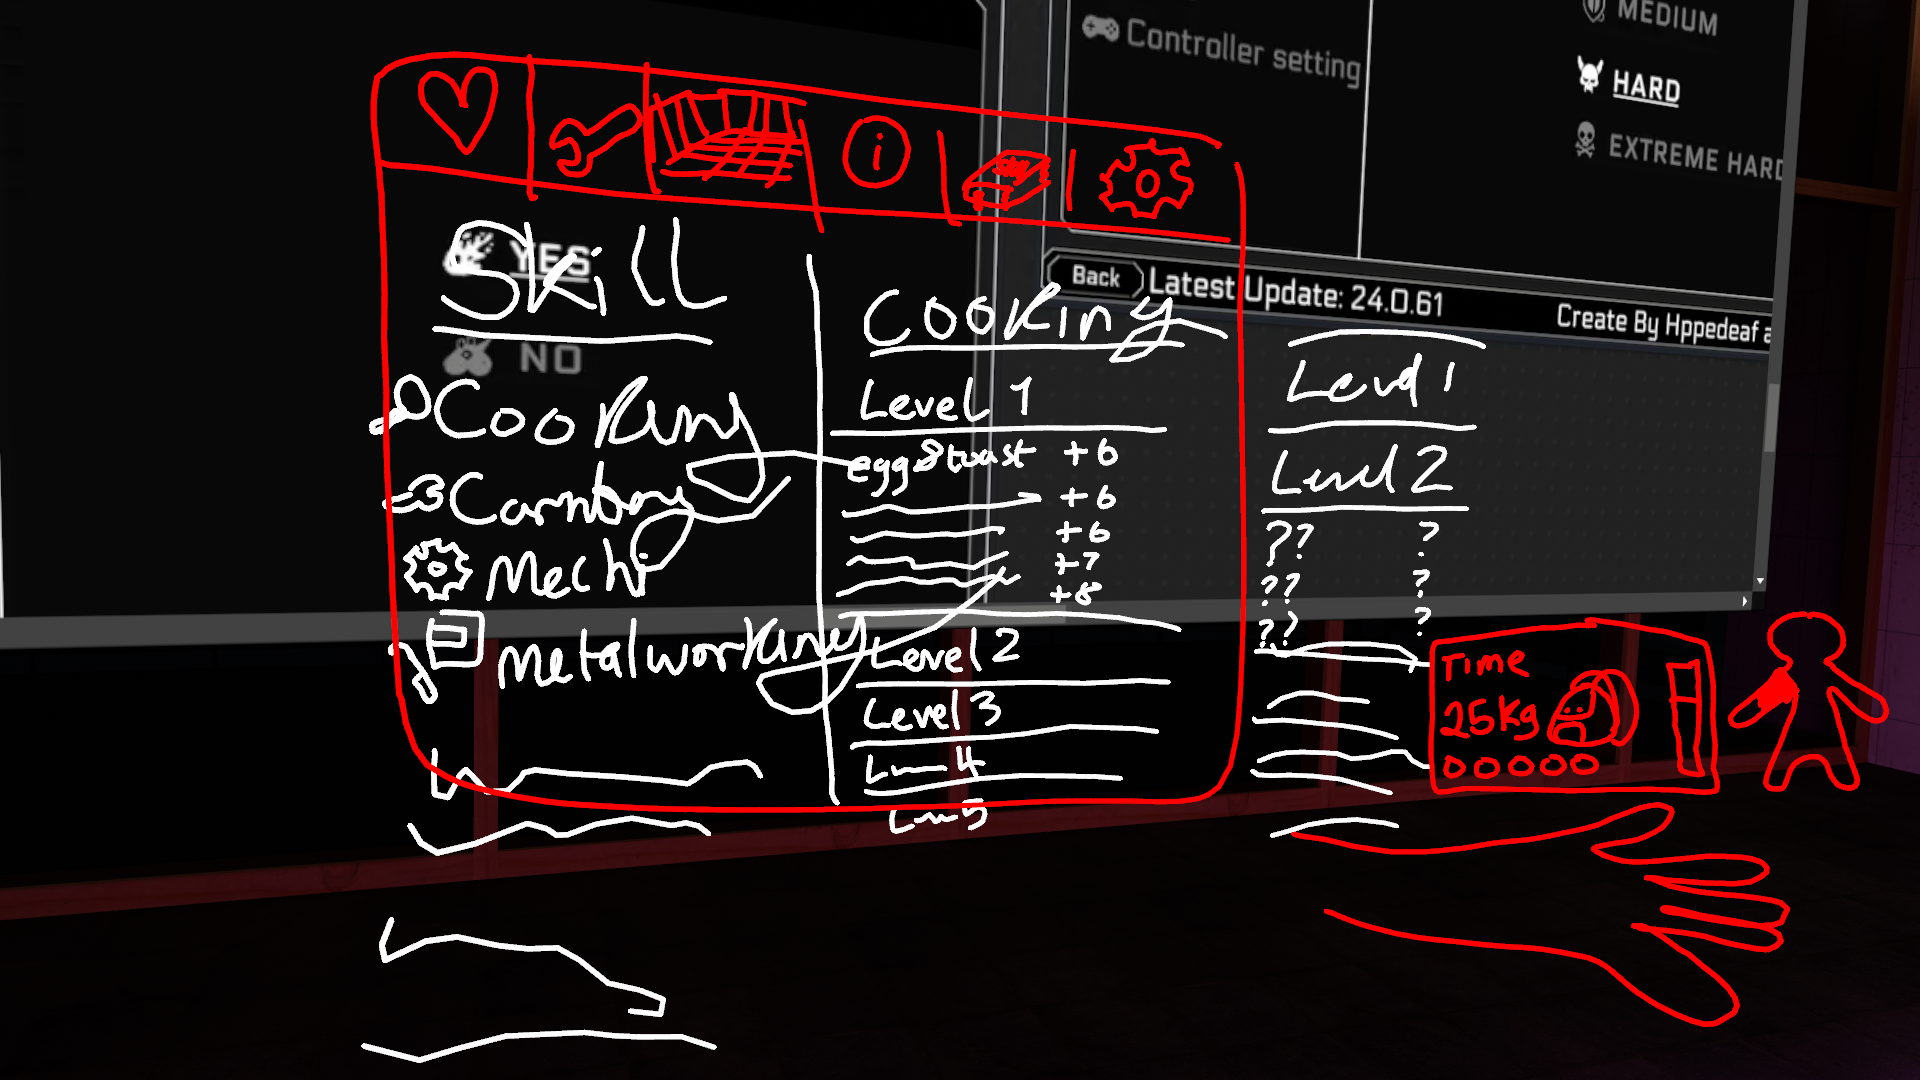 Controller setting
MEDIUM
HARD
EXTREME HARD
Back
Latest Update: 24.0.61
Create By Hppedeaf a
YES
NO
i
Skill
Cooking
Mech
Metalworking
Cooking
Level 1
egg & toast +6
+6
+6
+7
+8
Level 2
Level 3
4
5
Level 1
Level 2
?? ?
?? ?
?? ?
Time
25kg